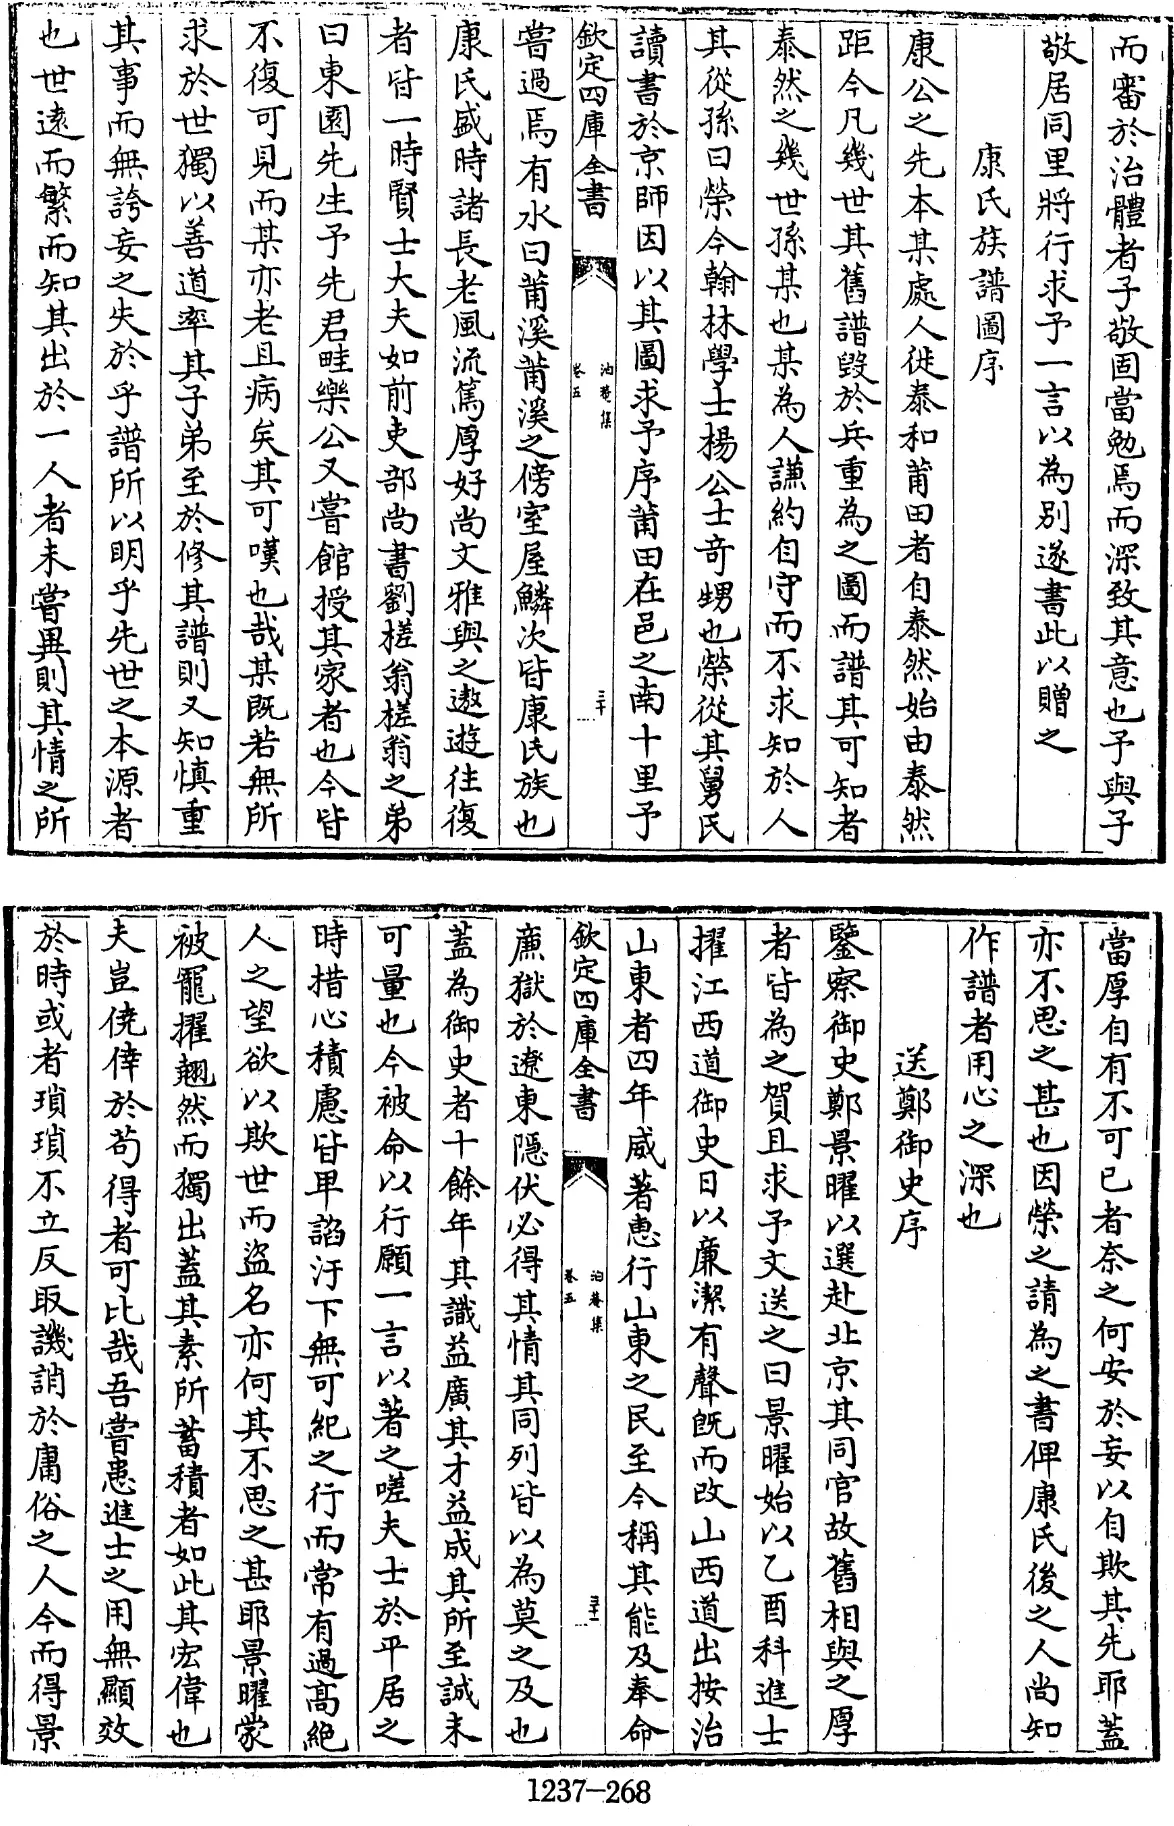 而審於治體者子敬固當勉焉而深致其意也予與子
敬居同里將行求予一言以為别遂書此以贈之
康氏族譜圖序
康公之先本某處人徙泰和莆田者自泰然始由泰然
距今凡幾世其舊譜毀於兵重為之圖而譜其可知者
泰然之幾世孫某也某為人謙約自守而不求知於人
其從孫曰榮今翰林學士楊公士竒甥也榮從其舅氏
讀書於京師因以其圖求予序莆田在邑之南十里予
欽定四庫全書
泊菴集
卷五
三十
嘗過焉有水曰莆溪莆溪之傍室屋鱗次皆康氏族也
康氏盛時諸長老風流篤厚好尚文雅與之遨遊往復
者皆一時賢士大夫如前吏部尚書劉槎翁槎翁之弟
曰東園先生予先君畦樂公又嘗館授其家者也今皆
不復可見而某亦老且病矣其可嘆也哉某既若無所
求於世獨以善道率其子弟至於修其譜則又知慎重
其事而無誇妄之失於乎譜所以明乎先世之本源者
也世遠而繁而知其出於一人者未嘗異則其情之所
當厚自有不可已者奈之何安於妄以自欺其先耶蓋
亦不思之甚也因榮之請為之書俾康氏後之人尚知
作譜者用心之深也
送鄭御史序
鑒察御史鄭景曜以選赴北京其同官故舊相與之厚
者皆為之賀且求予文送之曰景曜始以乙酉科進士
擢江西道御史日以廉潔有聲既而改山西道出按治
山東者四年威著惠行山東之民至今稱其能及奉命
欽定四庫全書
泊菴集
卷五
三十一
亷獄於遼東隱伏必得其情其同列皆以為莫之及也
蓋為御史者十餘年其識益廣其才益成其所至誠未
可量也今被命以行願一言以著之嗟夫士於平居之
時措心積慮皆卑諂汙下無可紀之行而常有過高絶
人之望欲以欺世而盜名亦何其不思之甚耶景曜蒙
被寵擢翹然而獨出蓋其素所蓄積者如此其宏偉也
夫豈僥倖於苟得者可比哉吾嘗患進士之用無顯效
於時或者瑣瑣不立反取譏誚於庸俗之人今而得景
1237-268